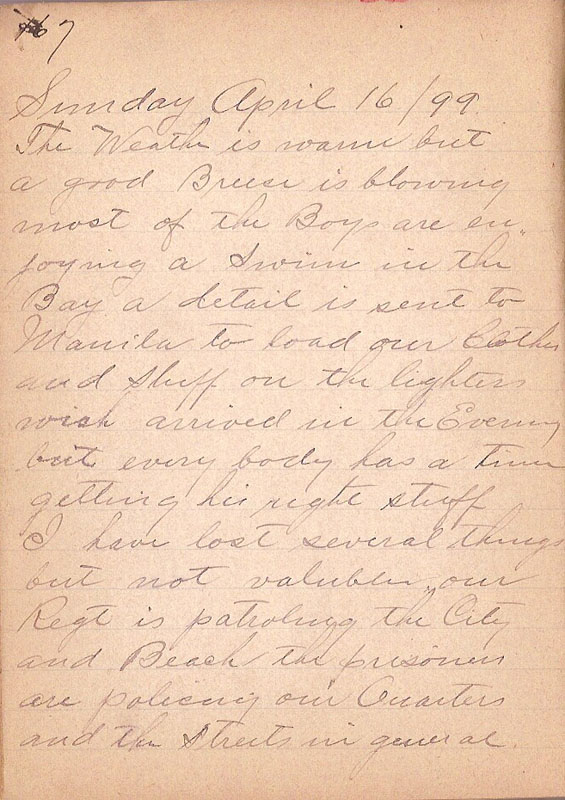 7
Sunday April 16/99
The Weathe is warm but
a good Breese is blowing
most of the Boys are en„
joying a Swim in the
Bay a detail is sent to
Manila to load our Clothes
and stuff on the lighters
wich arrived in the Evening
but every body has a time
getting his right stuff
I have lost several things
but not valubler „our
Regt is patrolng the City
and Beach the prisoners
are policing our Quarters
and the Streets in general.